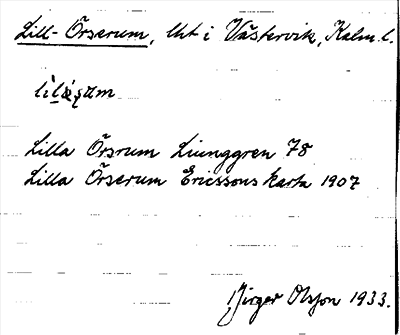 Lill-Örserum, Uht i Västervik, Kalm. l.
Lilla Örsrum Liunggren 78
Lilla Örserum Ericssons karta 1907
Birger Olsson 1933.